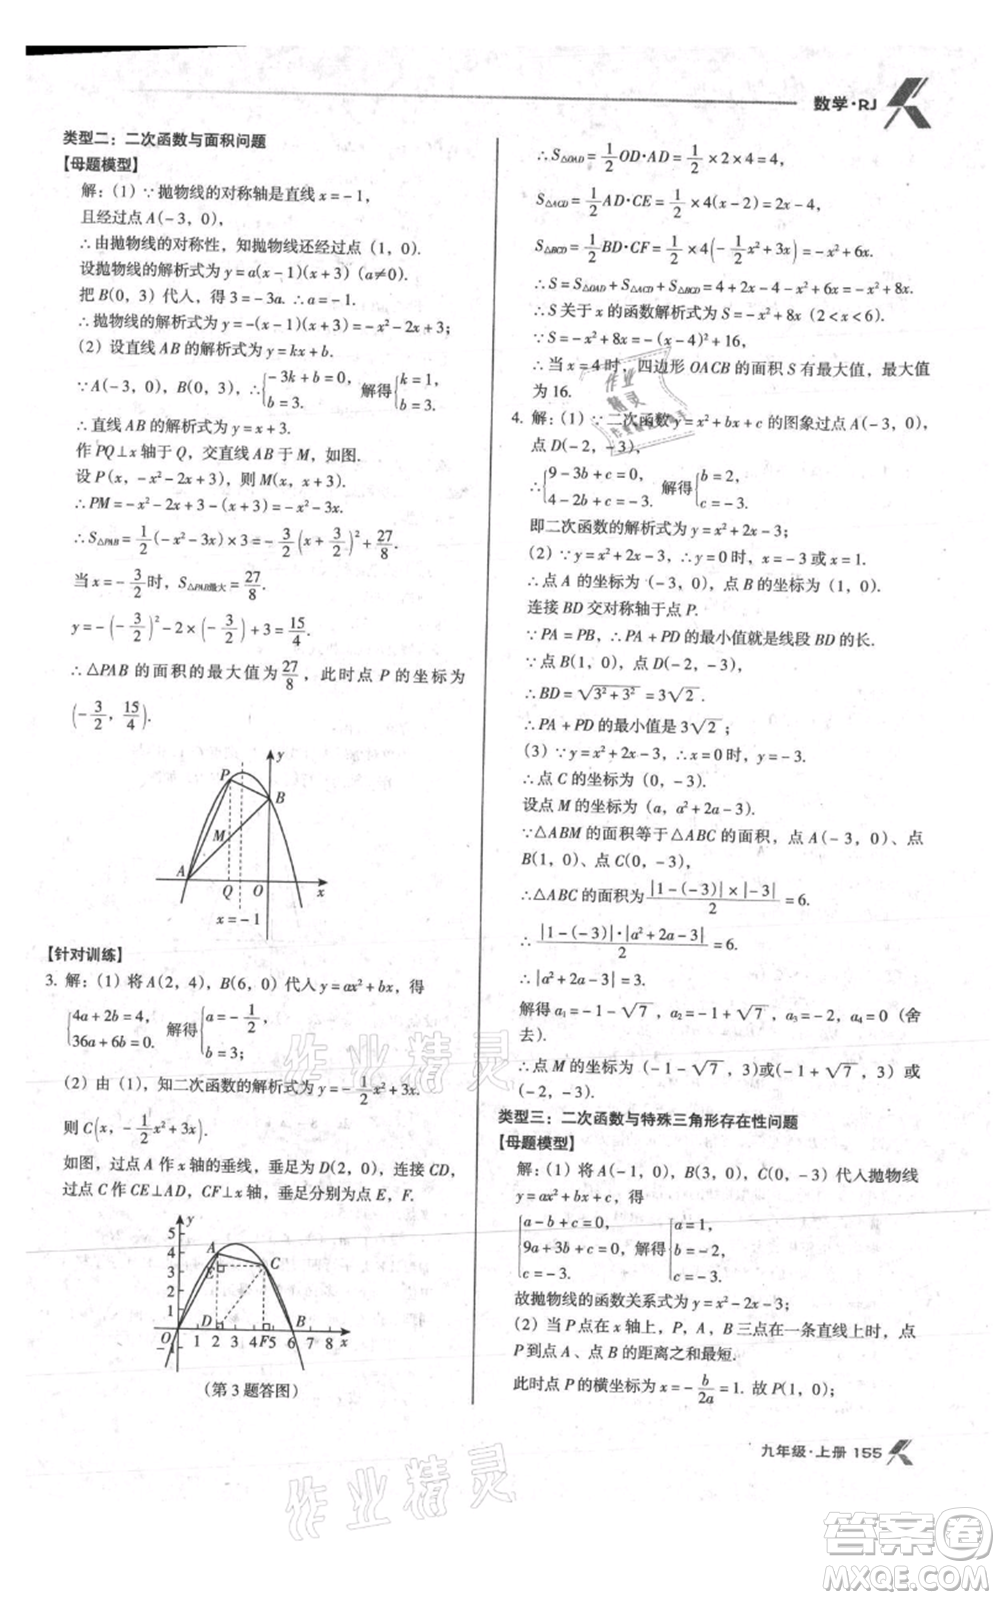 数学·RJ
类型二：二次函数与面积问题
【母题模型】
解：(1) ∵抛物线的对称轴是直线 x=-1,
且经过点 A(-3, 0),
∴由抛物线的对称性，知抛物线还经过点 (1, 0).
设抛物线的解析式为 y=a(x-1)(x+3) (a≠0).
把 B(0, 3) 代人，得 3=-3a. ∴a=-1.
∴抛物线的解析式为 y=-(x-1)(x+3)=-x²-2x+3;
(2) 设直线 AB 的解析式为 y=kx+b.
∵A(-3, 0), B(0, 3), ∴{-3k+b=0, b=3. 解得{k=1, b=3.
∴直线 AB 的解析式为 y=x+3.
作 PQ⊥x 轴于 Q, 交直线 AB 于 M,
设 P(x, -x²-2x+3), 则 M(x, x+3).
∴PM=-x²-2x+3-(x+3)=-x²-3x.
∴S△PAB=1/2(-x²-3x)×3=-3/2(x+3/2)²+27/8.
当 x=-3/2时, S△PAB最大=27/8.
y=-(-3/2)²-2×(-3/2)+3=15/4.
∴△PAB 的面积的最大值为27/8, 此时点 P 的坐标为
(-3/2, 15/4).
y
P
B
M
A
Q O x
x=-1
【针对训练】
3. 解：(1) 将 A(2, 4), B(6, 0) 代人 y=ax²+bx, 得
{4a+2b=4, 36a+6b=0. 解得{a=-1/2, b=3;
(2) 由 (1), 知二次函数的解析式为 y=-1/2x²+3x.
则 C(x, -1/2x²+3x).
如图，过点 A 作 x 轴的垂线，垂足为 D(2, 0), 连接 CD,
过点 C 作 CE⊥AD, CF⊥x 轴，垂足分别为点 E, F.
y
5
4 A
3 E C
2
1
O D B
1 2 3 4F5 6 7 8 x
-1
(第 3 题答图)
∴S△OAD=1/2OD·AD=1/2×2×4=4,
S△ACD=1/2AD·CE=1/2×4(x-2)=2x-4,
S△BCD=1/2BD·CF=1/2×4(-1/2x²+3x)=-x²+6x.
∴S=S△OAD+S△ACD+S△BCD=4+2x-4-x²+6x=-x²+8x.
∴S 关于 x 的函数解析式为 S=-x²+8x (2<x<6).
∵S=-x²+8x=-(x-4)²+16,
∴当 x=4 时，四边形 OACB 的面积 S 有最大值，最大值
为 16.
4. 解：(1) ∵二次函数 y=x²+bx+c 的图象过点 A(-3, 0),
点 D(-2, -3),
∴{9-3b+c=0, 4-2b+c=-3. 解得{b=2, c=-3.
即二次函数的解析式为 y=x²+2x-3;
(2) ∵y=x²+2x-3, ∴y=0 时, x=-3 或 x=1.
∴点 A 的坐标为 (-3, 0), 点 B 的坐标为 (1, 0).
连接 BD 交对称轴于点 P.
∵PA=PB, ∴PA+PD 的最小值就是线段 BD 的长.
∵点 B(1, 0), 点 D(-2, -3),
∴BD=√3²+3²=3√2.
∴PA+PD 的最小值是 3√2;
(3) ∵y=x²+2x-3, ∴x=0 时, y=-3.
∴点 C 的坐标为 (0, -3).
设点 M 的坐标为 (a, a²+2a-3).
∵△ABM 的面积等于△ABC 的面积，点 A(-3, 0), 点
B(1, 0), 点 C(0, -3),
∴△ABC 的面积为|1-(-3)|×|-3|/2=6.
∴|1-(-3)|·|a²+2a-3|/2=6.
∴|a²+2a-3|=3.
解得 a₁=-1-√7, a₂=-1+√7, a₃=-2, a₄=0 (舍
去).
∴点 M 的坐标为 (-1-√7, 3) 或 (-1+√7, 3) 或
(-2, -3).
类型三：二次函数与特殊三角形存在性问题
【母题模型】
解：(1) 将 A(-1, 0), B(3, 0), C(0, -3) 代人抛物线
y=ax²+bx+c, 得
{a-b+c=0, 9a+3b+c=0, c=-3. 解得{a=1, b=-2, c=-3.
故抛物线的函数关系式为 y=x²-2x-3;
(2) 当 P 点在 x 轴上, P, A, B 三点在一条直线上时, 点
P 到点 A、点 B 的距离之和最短.
此时点 P 的横坐标为 x=-b/2a=1. 故 P(1, 0);
九年级·上册 155
作业精灵
作业精灵
作业精灵
答案卷
MXQE.COM